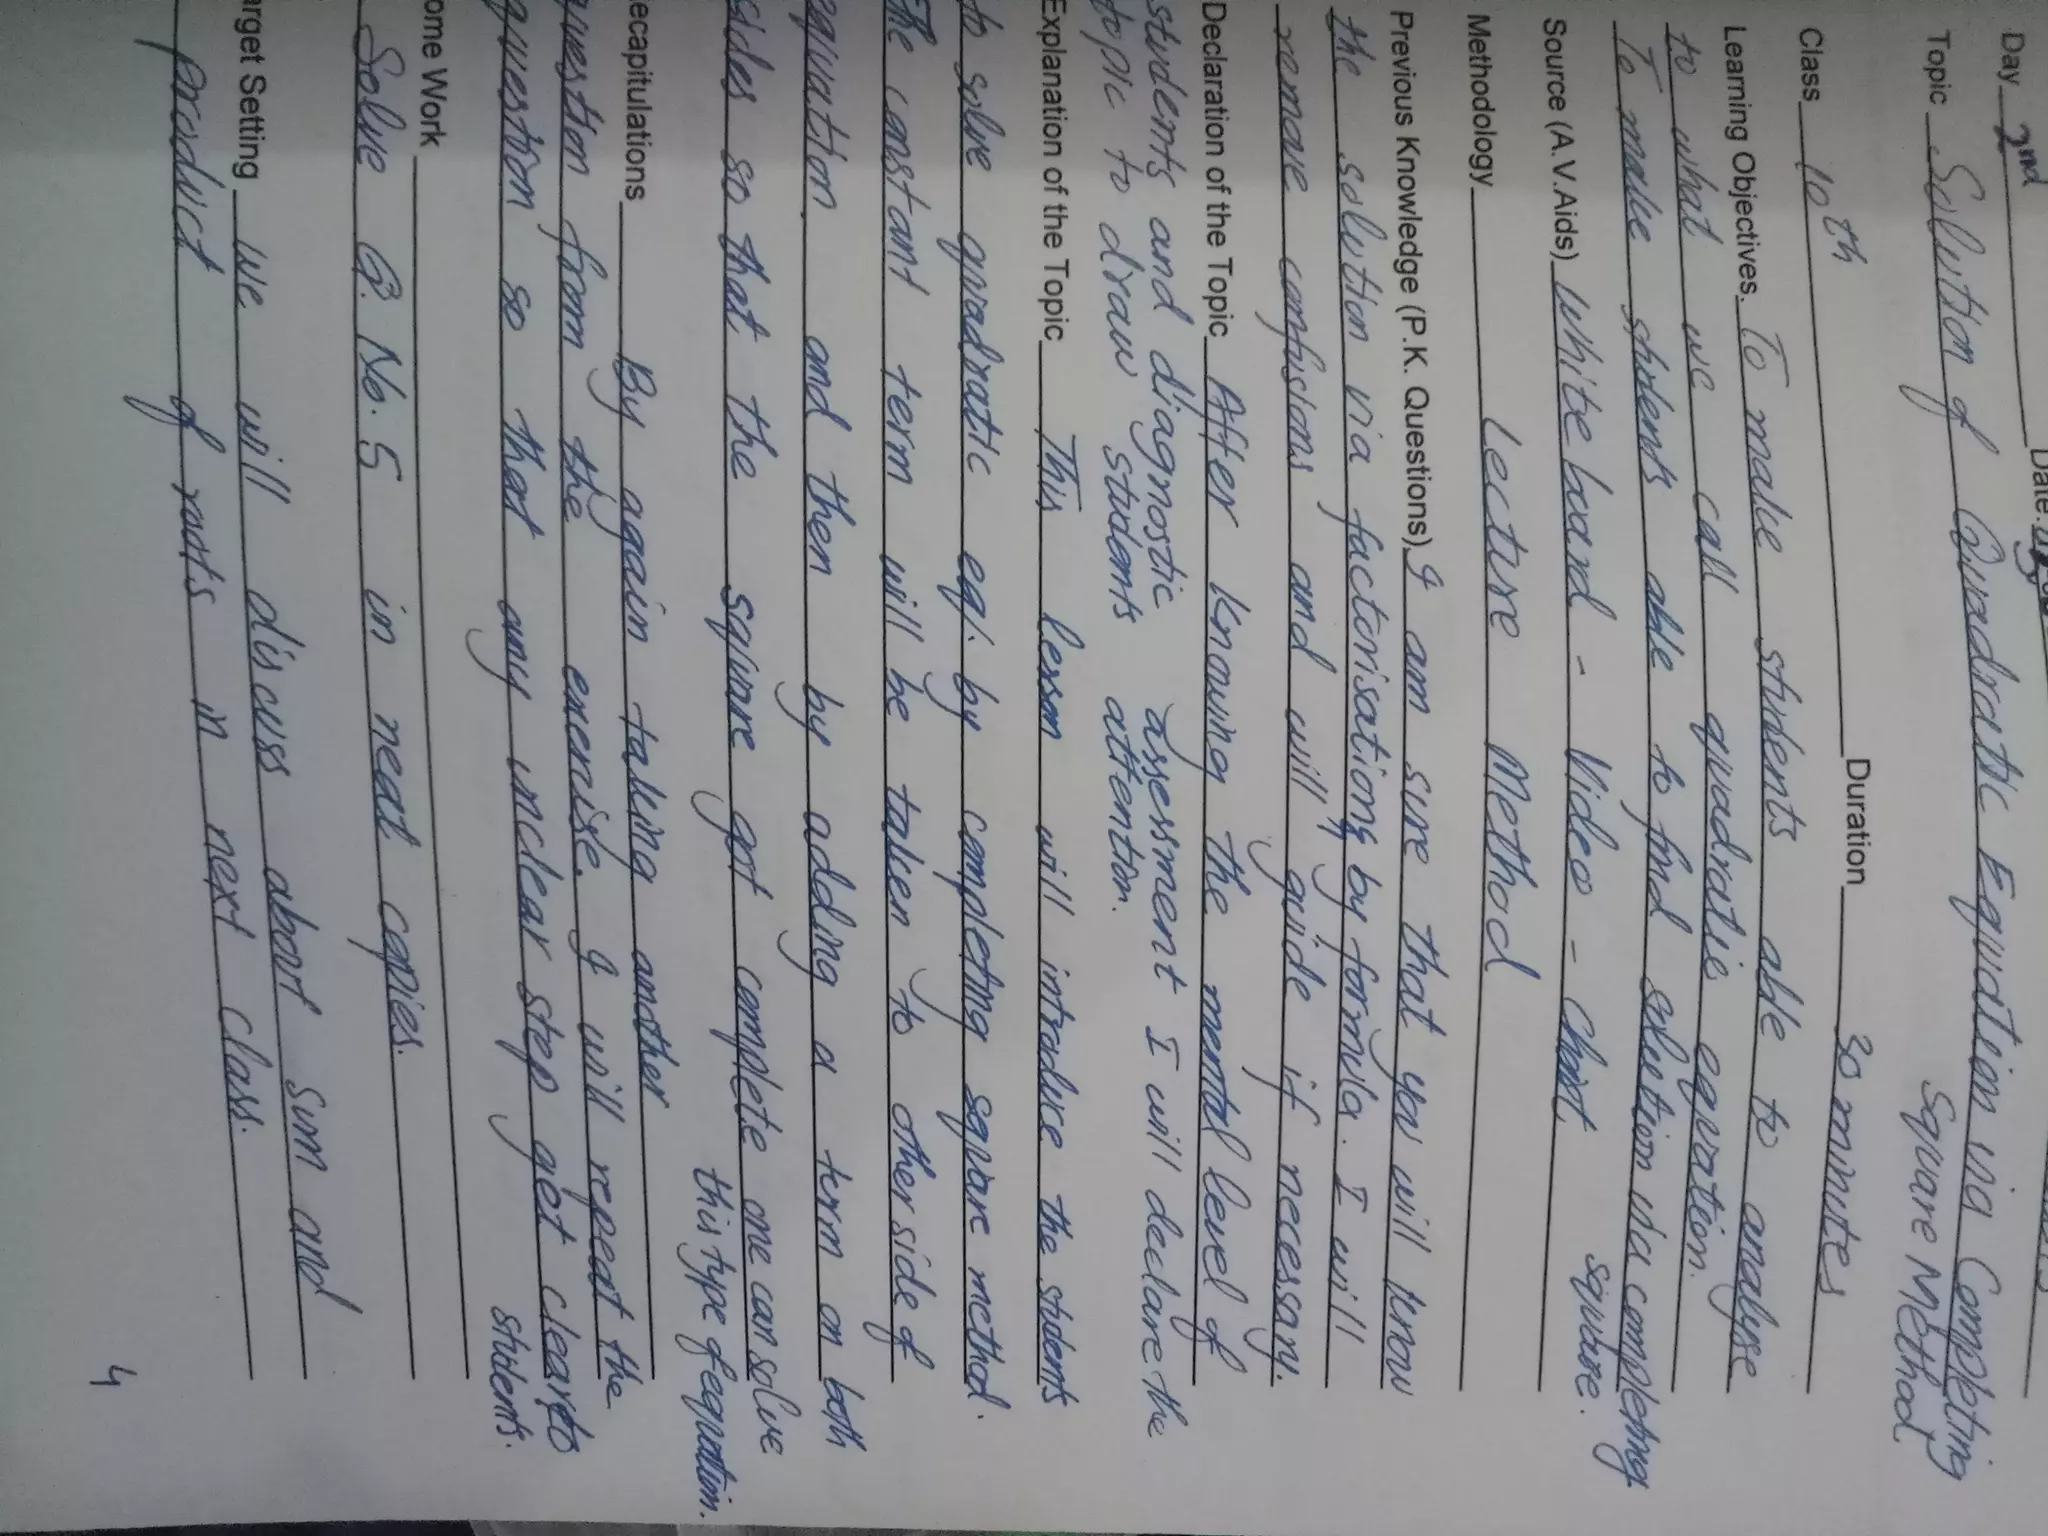 Day 2nd Date.
Topic Solution of Quadratic Equation via Completing
Square Method
Class 10th Duration 30 minutes
Learning Objectives. To make students able to analyse
to what we call quadratic equation.
To make students able to find solution via completing
square.
Source (A.V.Aids) White board - Video - Chart.
Methodology Lecture Method
Previous Knowledge (P.K. Questions) I am sure that you will know
the solution via factorisations, by formula. I will
remove confusions and will guide if necessary.
Declaration of the Topic After knowing the mental level of
students and diagnostic assessment I will declare the
topic to draw students attention.
Explanation of the Topic This lesson will introduce the students
to solve quadratic eq. by completing square method.
The constant term will be taken to other side of
equation and then by adding a term on both
sides so that the square got complete one can solve
this type of equation.
ecapitulations By again taking another
question from the exercise. I will repeat the
question so that any unclear step get clear to
students.
ome Work
Solve Q. No. 5 in neat copies.
arget Setting we will discuss about sum and
product of roots in next class.
4